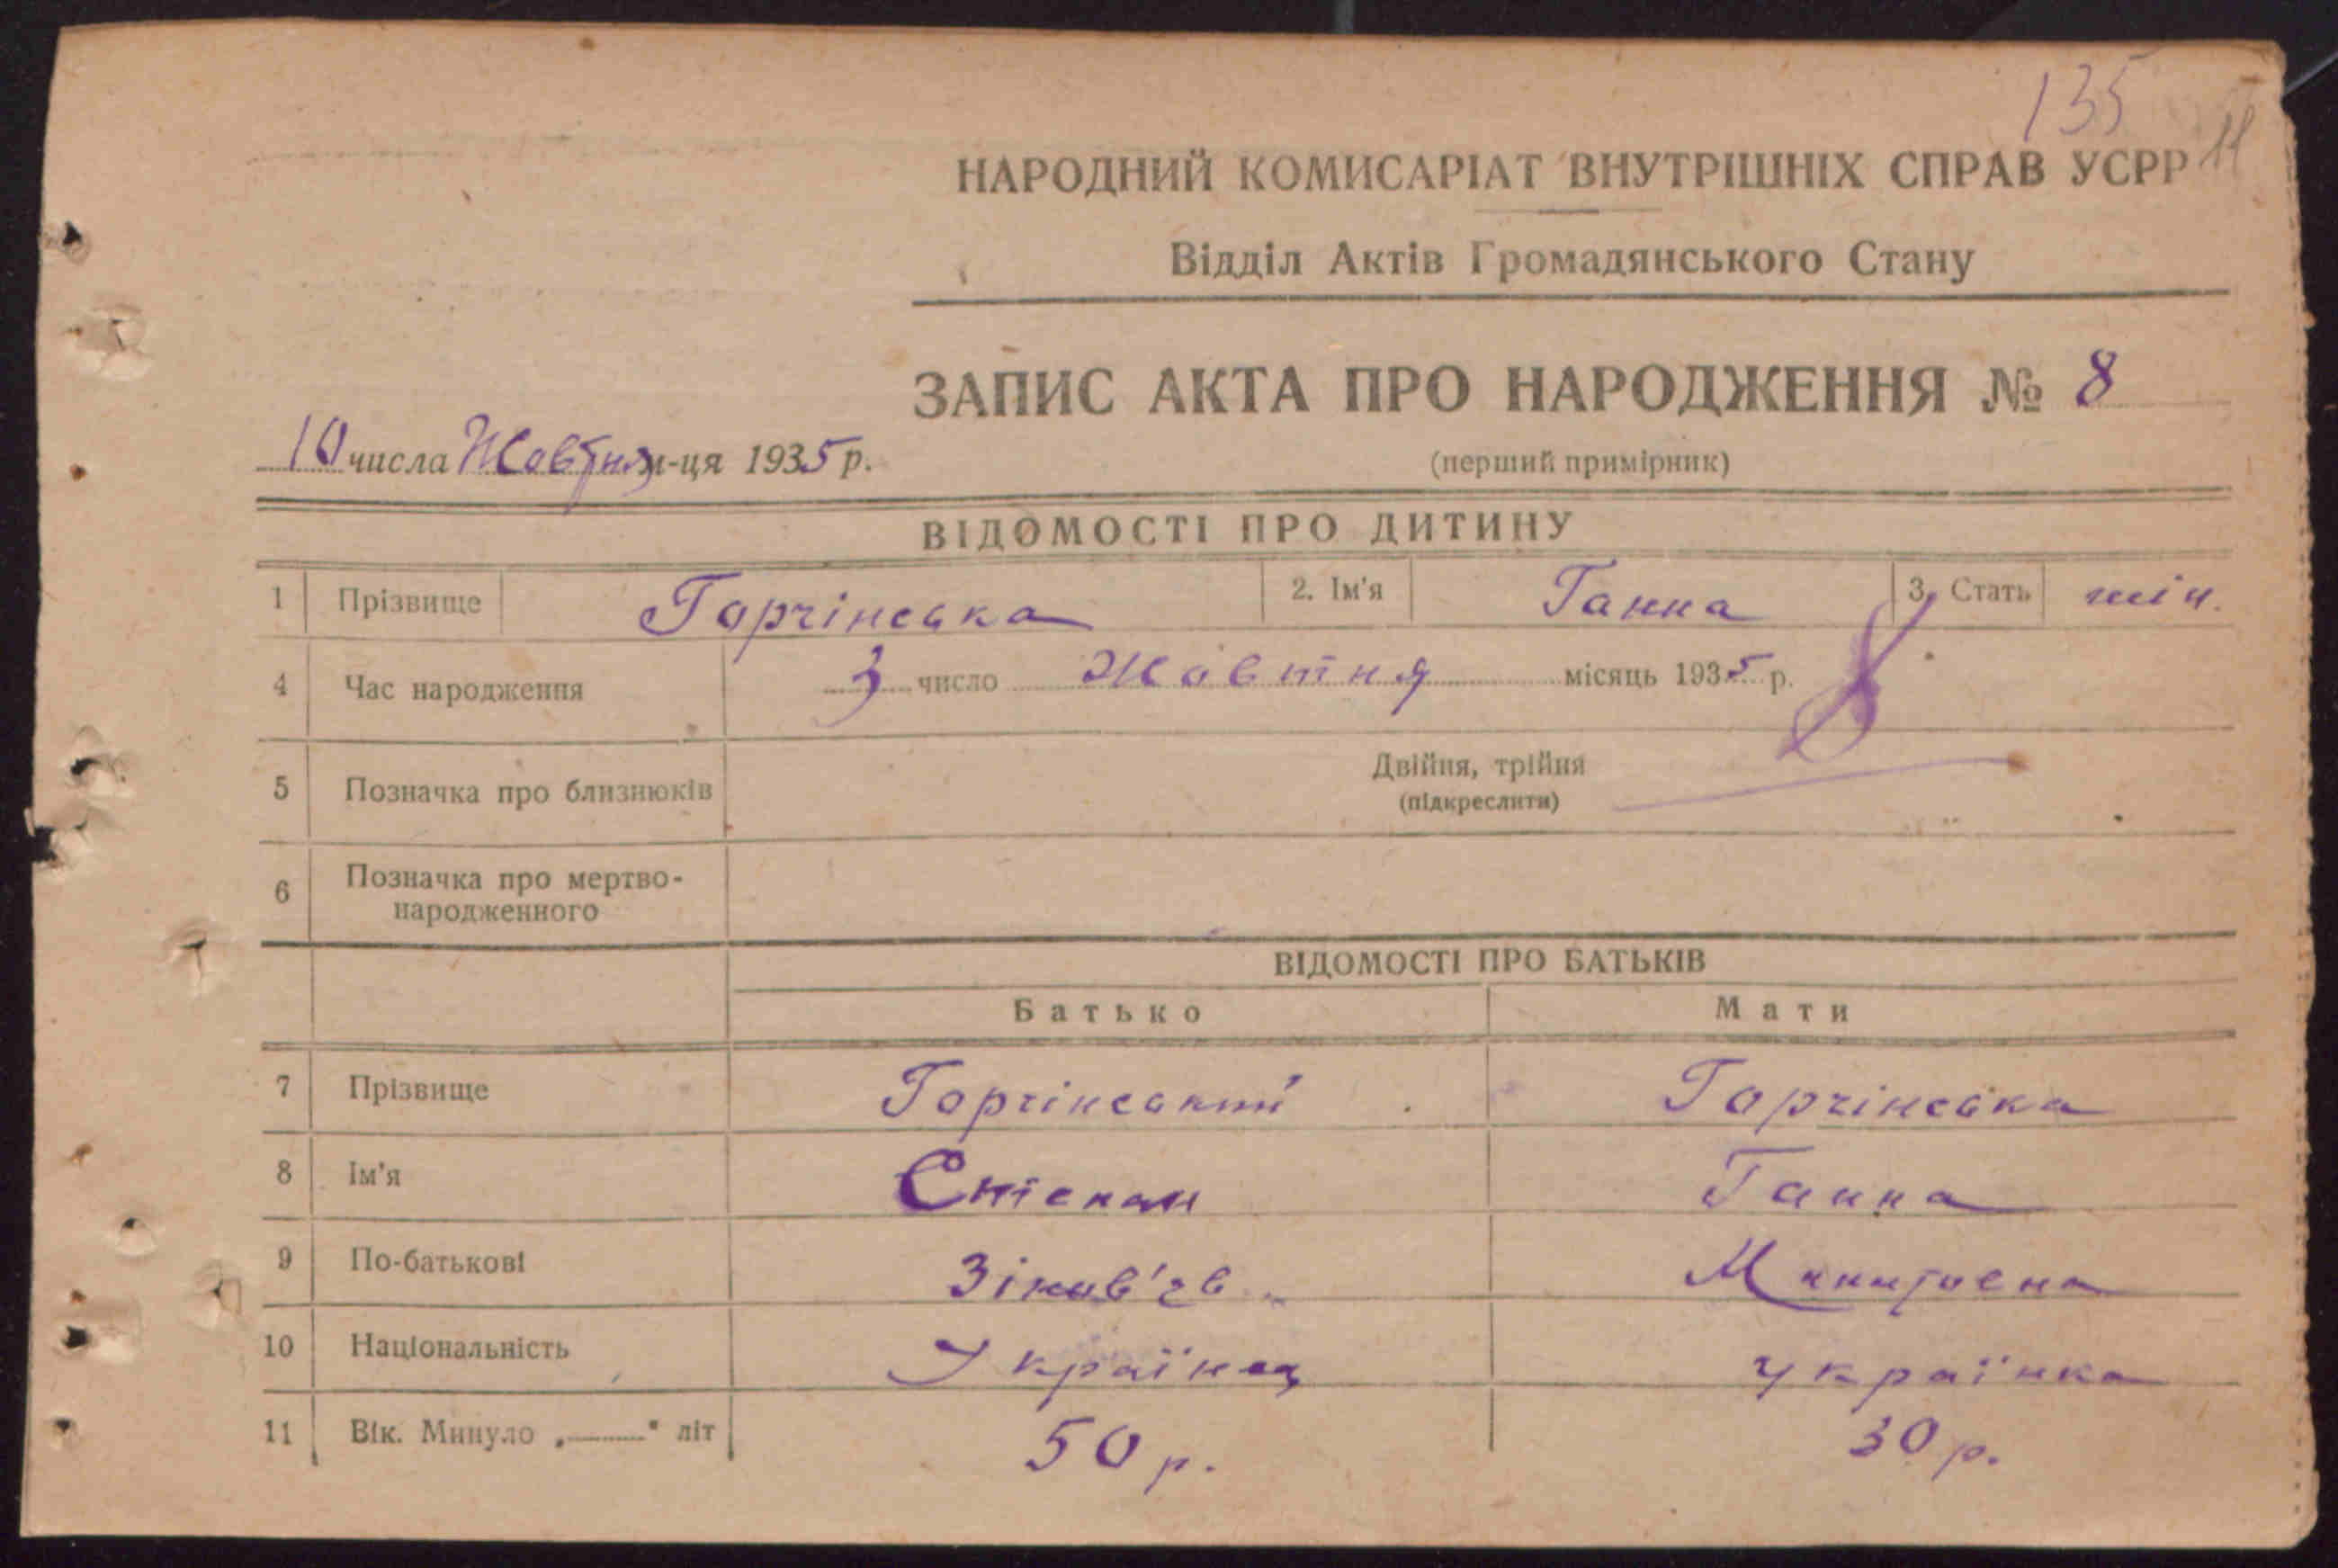 135
11
НАРОДНИЙ КОМИСАРІАТ ВНУТРІШНІХ СПРАВ УСРР
Відділ Актів Громадянського Стану
ЗАПИС АКТА ПРО НАРОДЖЕННЯ № 8
10 числа Жовтня м-ця 1935 р.
(перший примірник)
ВІДОМОСТІ ПРО ДИТИНУ
1 Прізвище Горчінська 2. Ім'я Ганна 3. Стать жін.
4 Час народження 3 число Жовтня місяць 1935 р.
8
5 Позначка про близнюків Двійня, трійня
(підкреслити)
6 Позначка про мертво-
народженного
ВІДОМОСТІ ПРО БАТЬКІВ
Батько Мати
7 Прізвище Горчінський Горчінська
8 Ім'я Степан Ганна
9 По-батькові Зінов'єв
10 Національність Українец українка
11 Вік. Минуло „ " літ 50 р. 30 р.